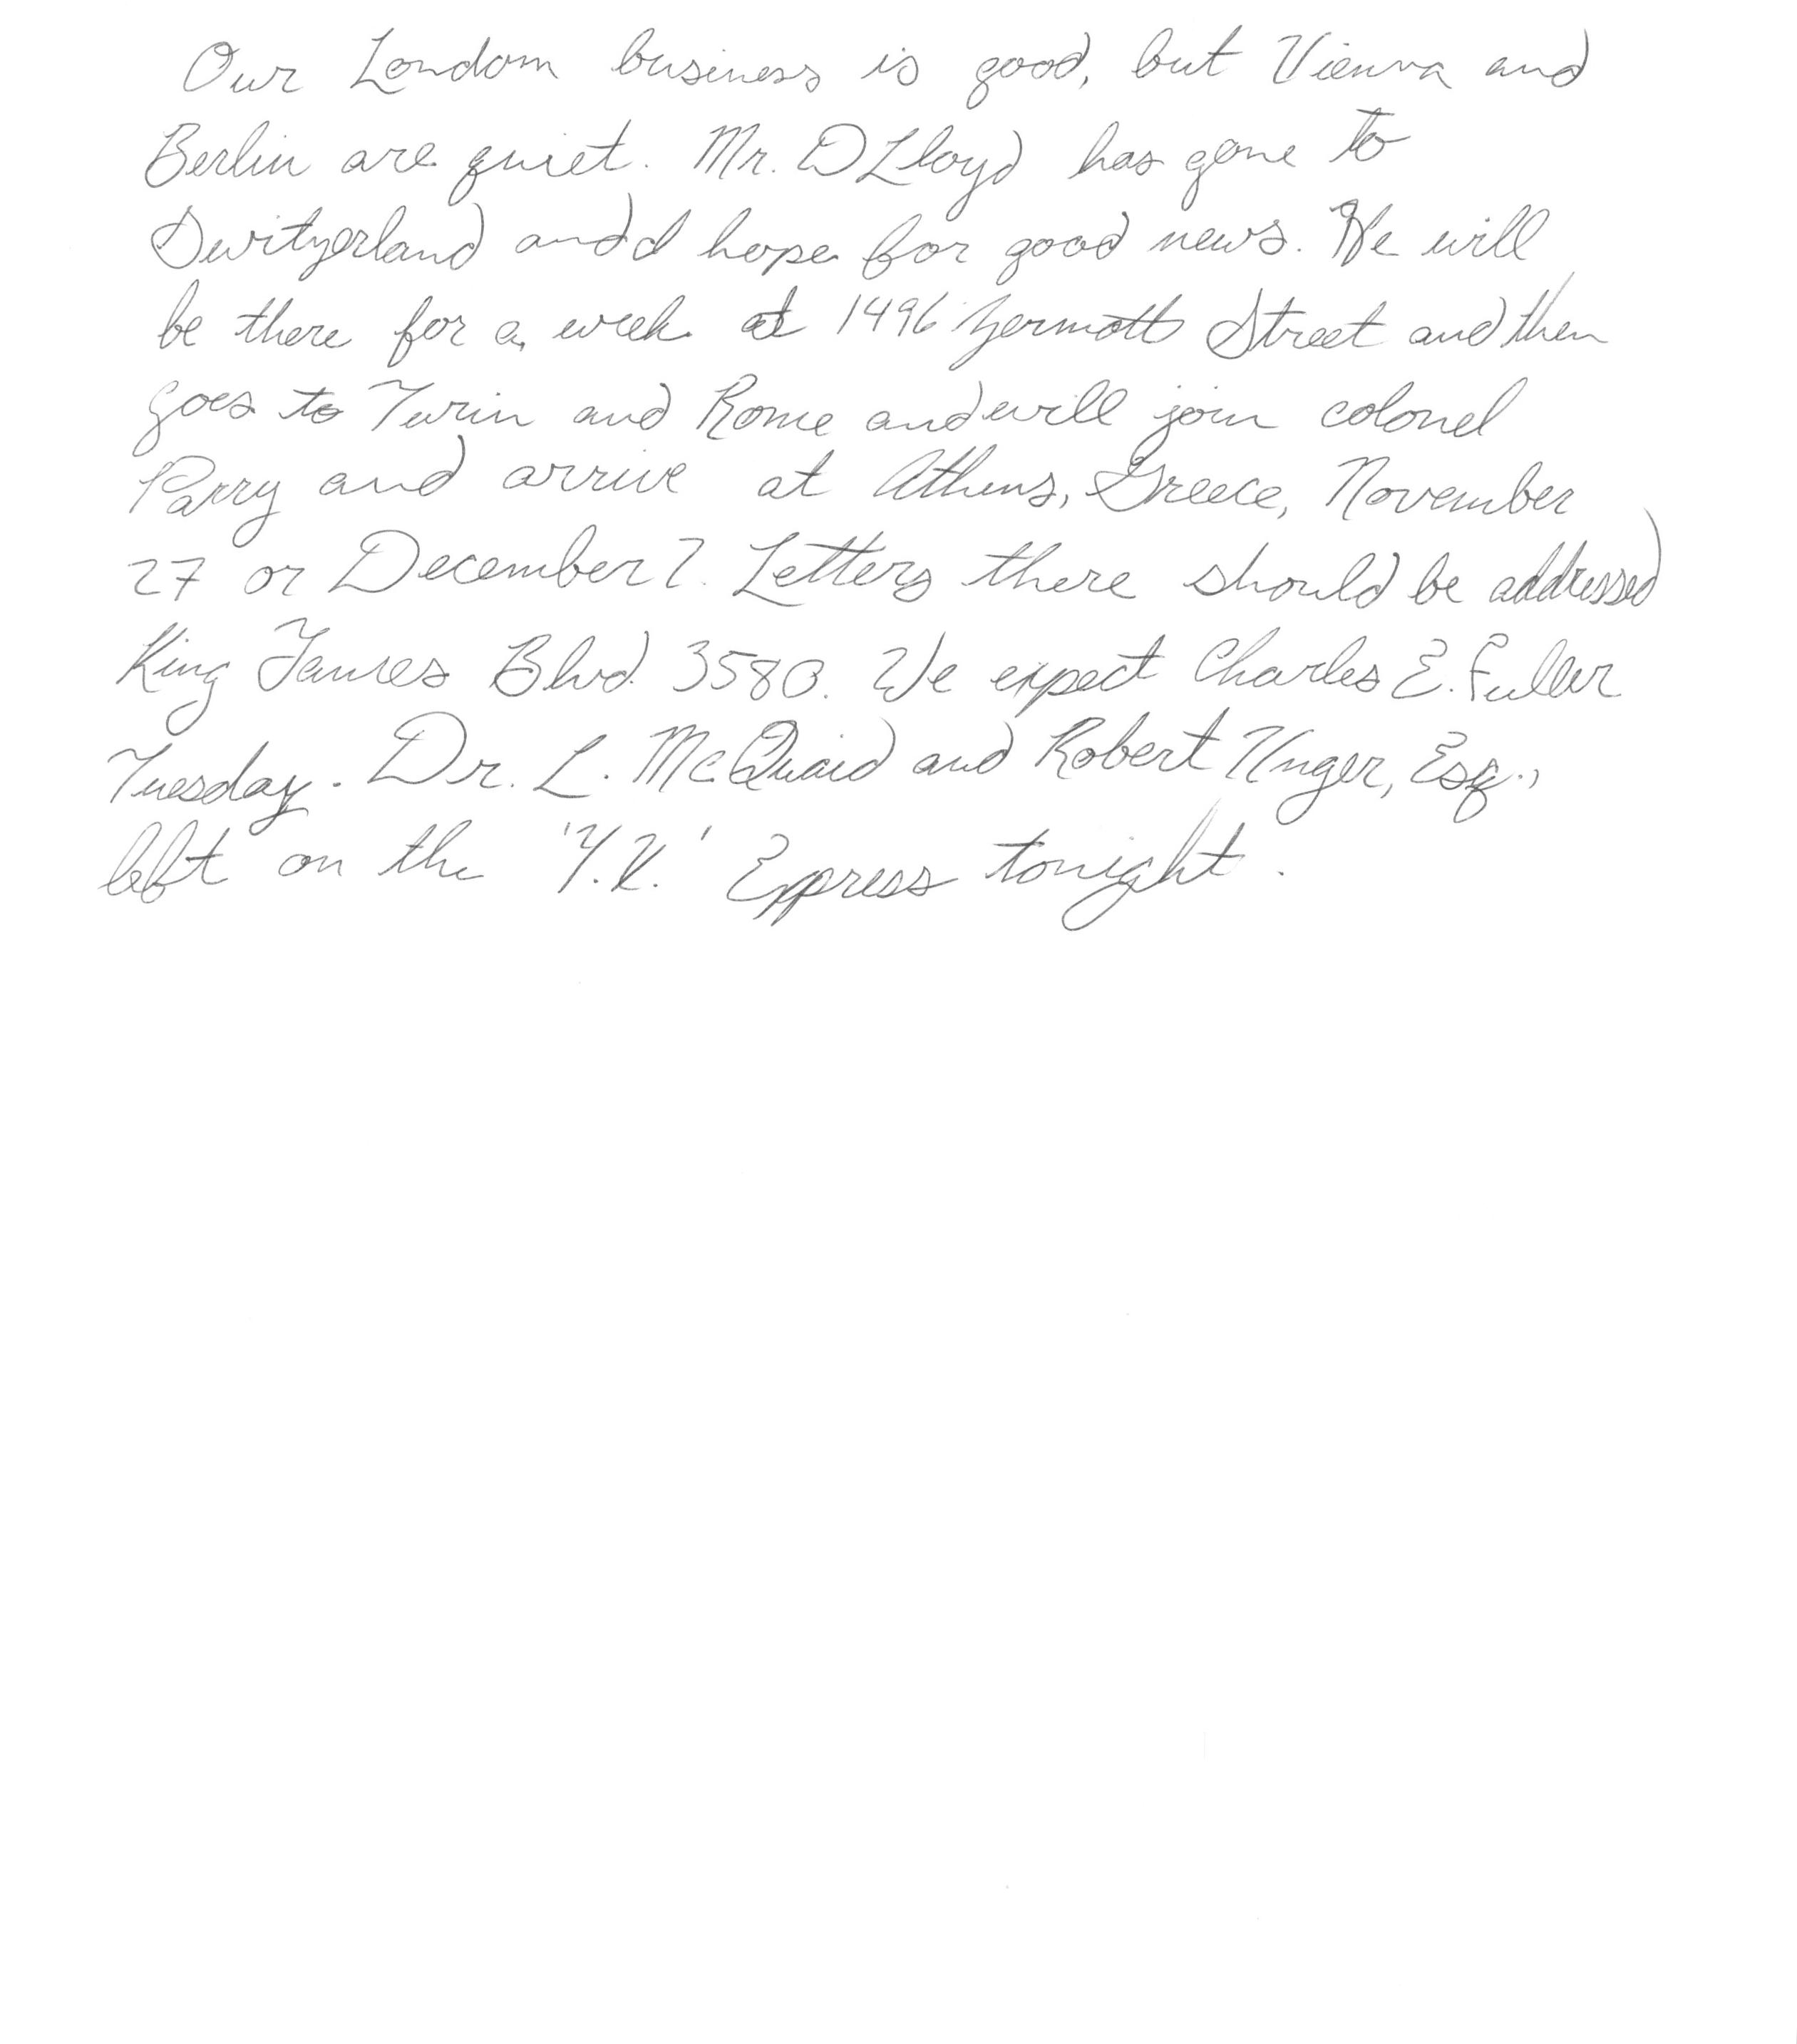 Our London business is good, but Vienna and
Berlin are quiet. Mr. D Lloyd has gone to
Switzerland and d hope for good news. He will
be there for a week at 1496 Zermott Street and then
goes to Turin and Rome and will join colonel
Parry and arrive at Athens, Greece, November
27 or December 2. Letters there should be addressed
King James Blvd. 3580. We expect Charles E. Fuller
Tuesday. Dr. L. McQuaid and Robert Unger, Esq.,
left on the 'Y.X.' Express tonight.